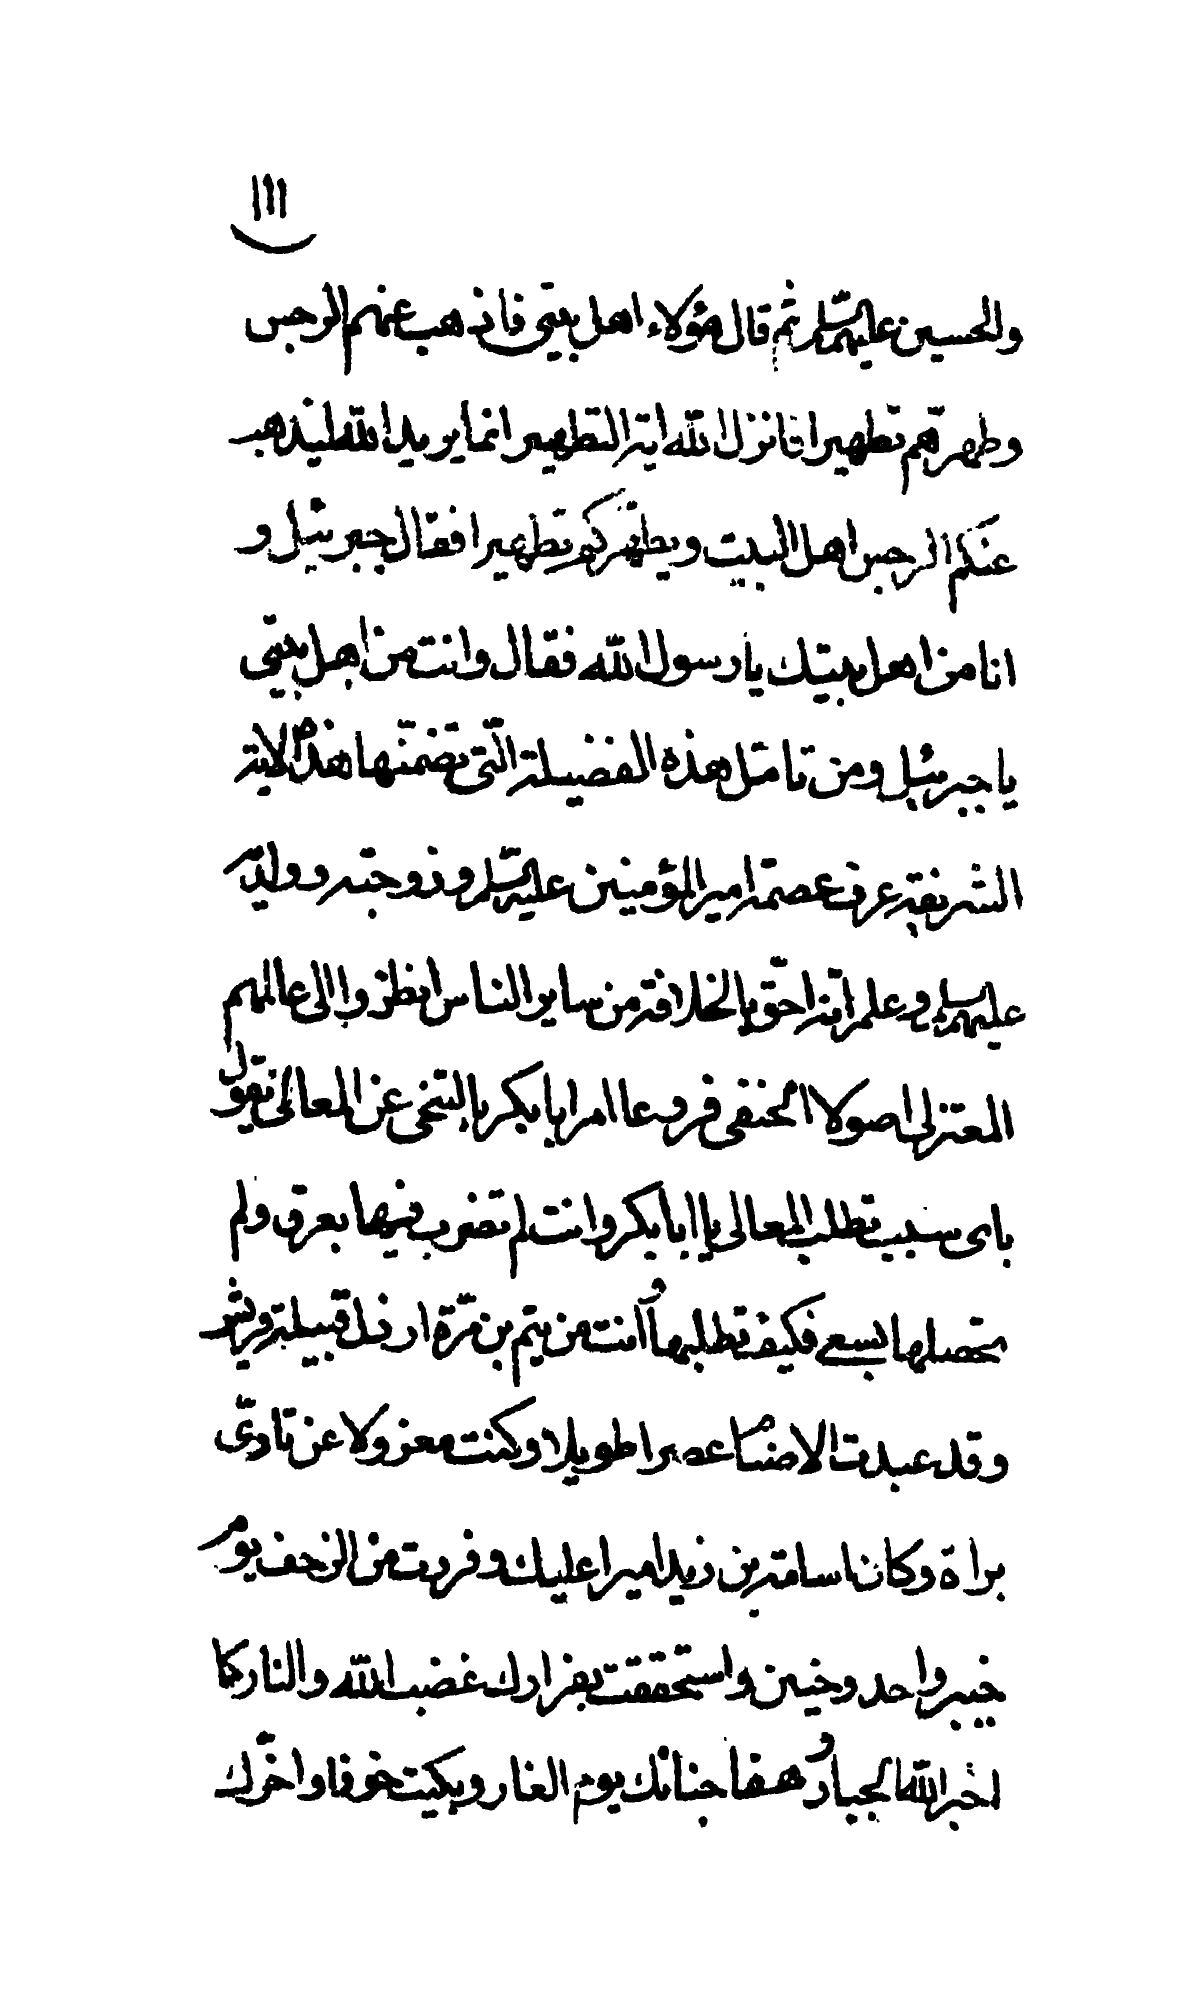 ١١١
والحسين عليهم السلم ثم قال هؤلاء اهل بيتي فاذهب عنهم الرجس
وطهرهم تطهيرا فانزل الله اية التطهير انما يريد الله ليذهب
عنكم الرجس اهل البيت ويطهركم تطهيرا فقال جبرئيل و
انا من اهل بيتك يا رسول الله فقال وانت من اهل بيتي
يا جبرئيل ومن تامل هذه الفضيلة التي تضمنها هذه الاية
الشريفة عرف عصمة امير المؤمنين عليه السلم وزوجته وولديه
عليهم السلم وعلم انه احق بالخلافة من ساير الناس انظروا الى عالمهم
المعتزلي اصولا الحنفي فروعا امرا بابكر بالتنحي عن المعالى بقول
باى سبب تطلب المعالى يا ابا بكر وانت لم تضرب فيها بعرق ولم
تحصلها بسعي فكيف تطلبها وانت من تيم بن مرة ارذل قبيلة قريش
وقد عبدت الاصنام عصرا طويلا وكنت معزولا عن تادى
براءة وكان اسامة بن زيد اميرا عليك وفررت من الزحف يوم
خيبر واحد وحنين واستحققت بفرارك غضب الله والنار كما
اخبر الله الجبار وهفا جنانك يوم الغار وبكيت خوفا واخرك